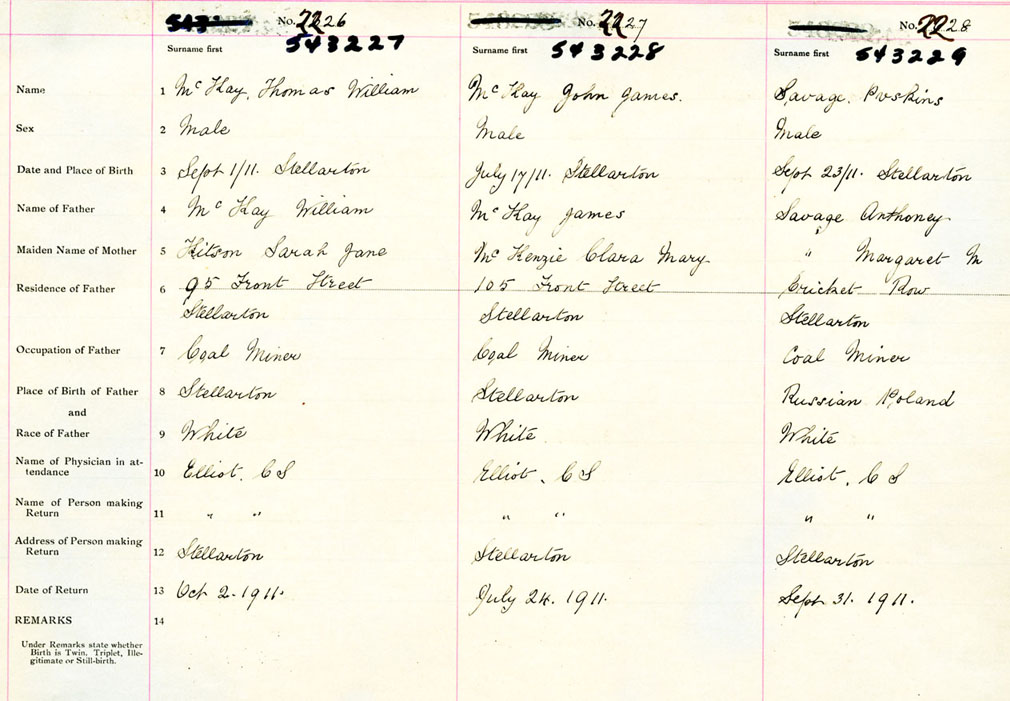 543 No. 2226 No. 2227 No. 2228
Surname first 543227 Surname first 543228 Surname first 543229
Name 1 Mc Kay, Thomas William Mc Kay John James. Savage.
Sex 2 Male Male Male
Date and Place of Birth 3 Sept 1/11. Stellarton July 17/11. Stellarton Sept 23/11. Stellarton
Name of Father 4 Mc Kay William Mc Kay James Savage Anthoney
Maiden Name of Mother 5 Kitson Sarah Jane Mc Kenzie Clara Mary. " Margaret M
Residence of Father 6 95 Front Street 105 Front Street Cricket Row
Stellarton Stellarton Stellarton
Occupation of Father 7 Coal Miner Coal Miner Coal Miner
Place of Birth of Father 8 Stellarton Stellarton Russian Poland
and
Race of Father 9 White White White
Name of Physician in at-
tendance 10 Elliot. C S Elliot. C S Elliot. C S
Name of Person making
Return 11 " " " " " "
Address of Person making
Return 12 Stellarton Stellarton Stellarton
Date of Return 13 Oct 2. 1911. July 24. 1911. Sept 31. 1911.
REMARKS 14
Under Remarks state whether
Birth is Twin, Triplet, Ille-
gitimate or Still-birth.